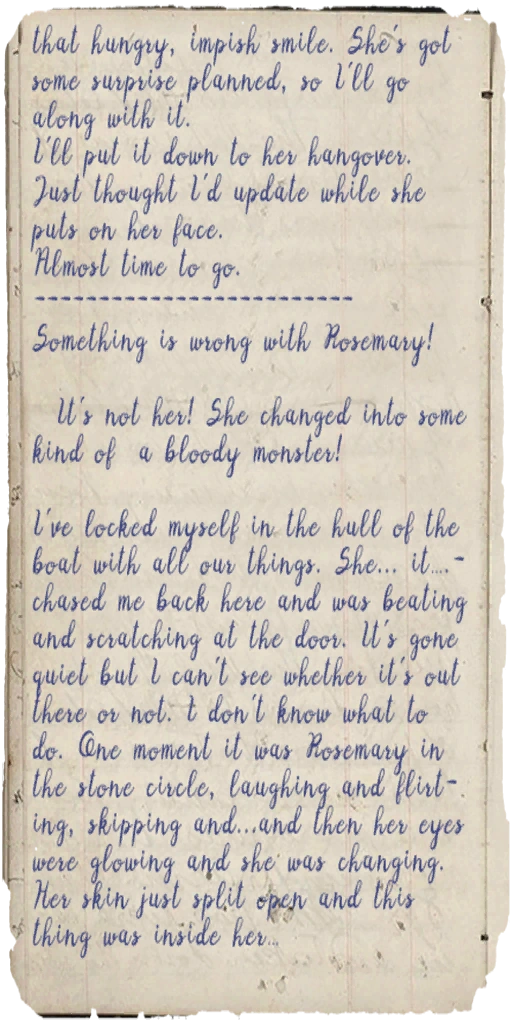 that hungry, impish smile. She's got
some surprise planned, so I'll go
along with it.
I'll put it down to her hangover.
Just thought I'd update while she
puts on her face.
Almost time to go.
-------------------------
Something is wrong with Rosemary!
It's not her! She changed into some
kind of a bloody monster!
I've locked myself in the hull of the
boat with all our things. She... it....-
chased me back here and was beating
and scratching at the door. It's gone
quiet but I can't see whether it's out
there or not. I don't know what to
do. One moment it was Rosemary in
the stone circle, laughing and flirt-
ing, skipping and...and then her eyes
were glowing and she was changing.
Her skin just split open and this
thing was inside her...